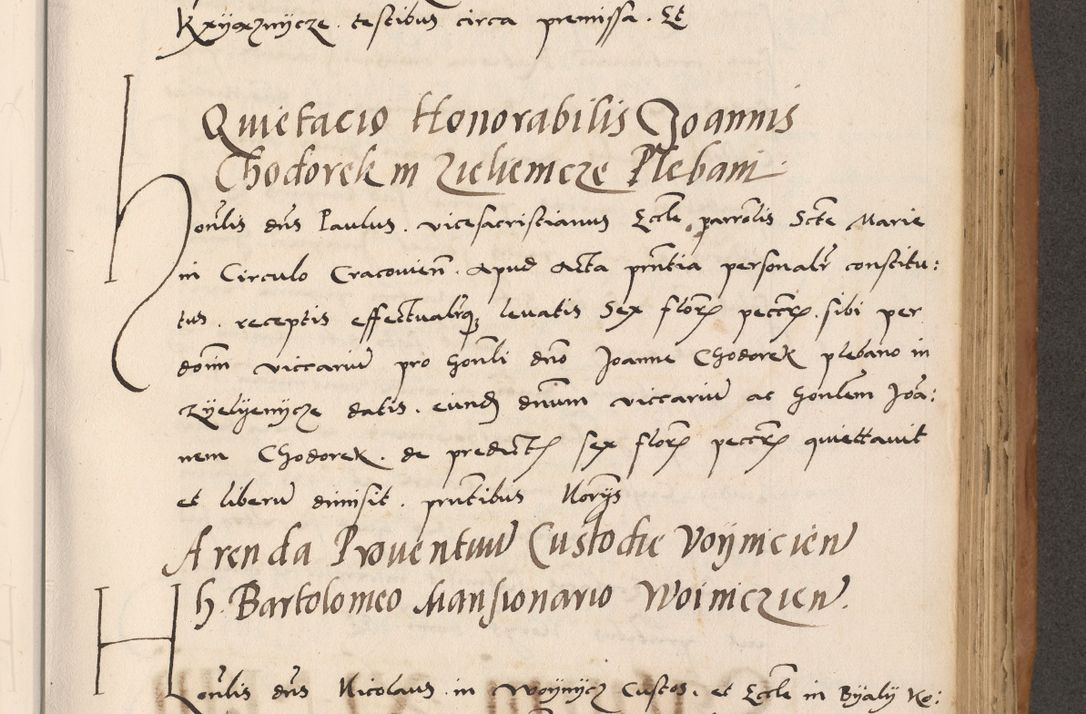 Kxyąznycze. testibus circa premissa. Et
Quietacio Honorabilis Joannis
Chodorek in Zieliencze Plebani
Honlis dns Paulus. vicesacristianus Eccle parrolis Scte Marie
in Circulo Cracovien. Apud Acta pntia personalr constitu:
tus. receptis effectualrq levatis Sex florz peccrz. sibi per
donm viccariu pro honli dno Joanne Chodorek plebano in
Zyelyenycze datis. eund dnum viccariu ac honlem Joa:
nem Chodorek. de predict sex florz peccrz quiettavit
et liberu dimisit. pntibus Norys
Arenda Proventuu Custodie Voynicien
h. Bartolomeo Mansionario Woiniczien.
Honlis dns Nicolaus. in Woynycz Custos. et Eccle in Byaly Ko: